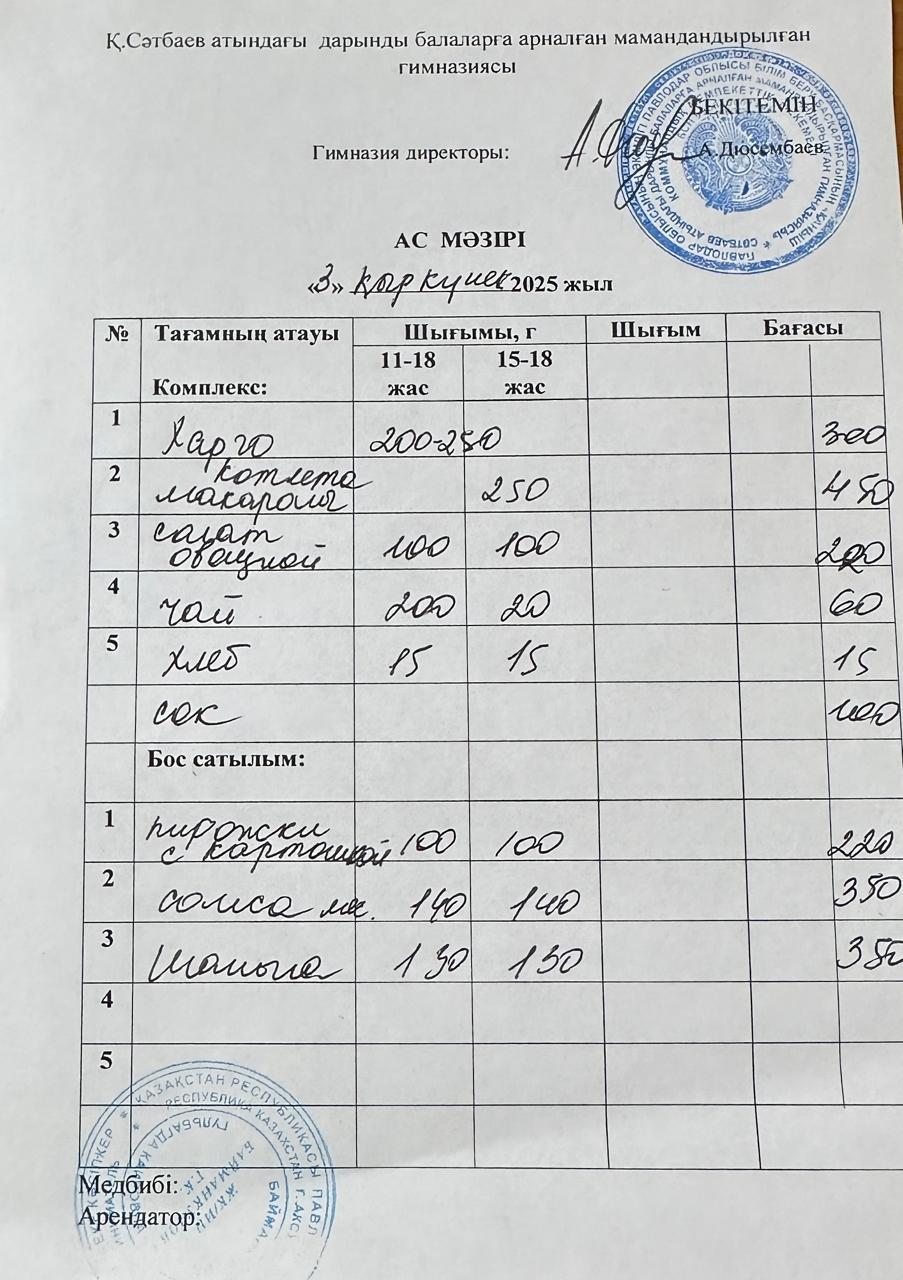 Қ.Сәтбаев атындағы дарынды балаларға арналған мамандандырылған
гимназиясы
БЕКІТЕМІН
Гимназия директоры: А.Дюсембаев
АС МӘЗІРІ
«3» қыркүйек 2025 жыл
№ Тағамның атауы Шығымы, г Шығым Бағасы
Комплекс: 11-18 жас 15-18 жас
1 Харчо 200-250 300
2 котлета
макароны 250 450
3 салат
овощной 100 100 200
4 чай 200 20 60
5 хлеб 15 15 15
сок 400
Бос сатылым:
1 пирожки
с картошкой 100 100 220
2 самса мяс. 140 140 350
3 Шаньга 130 130 350
4
5
Медбибі:
Арендатор:
ҚАЗАҚСТАН РЕСПУБЛИКАСЫ ПАВЛ
РЕСПУБЛИКА КАЗАХСТАН Г.АКС